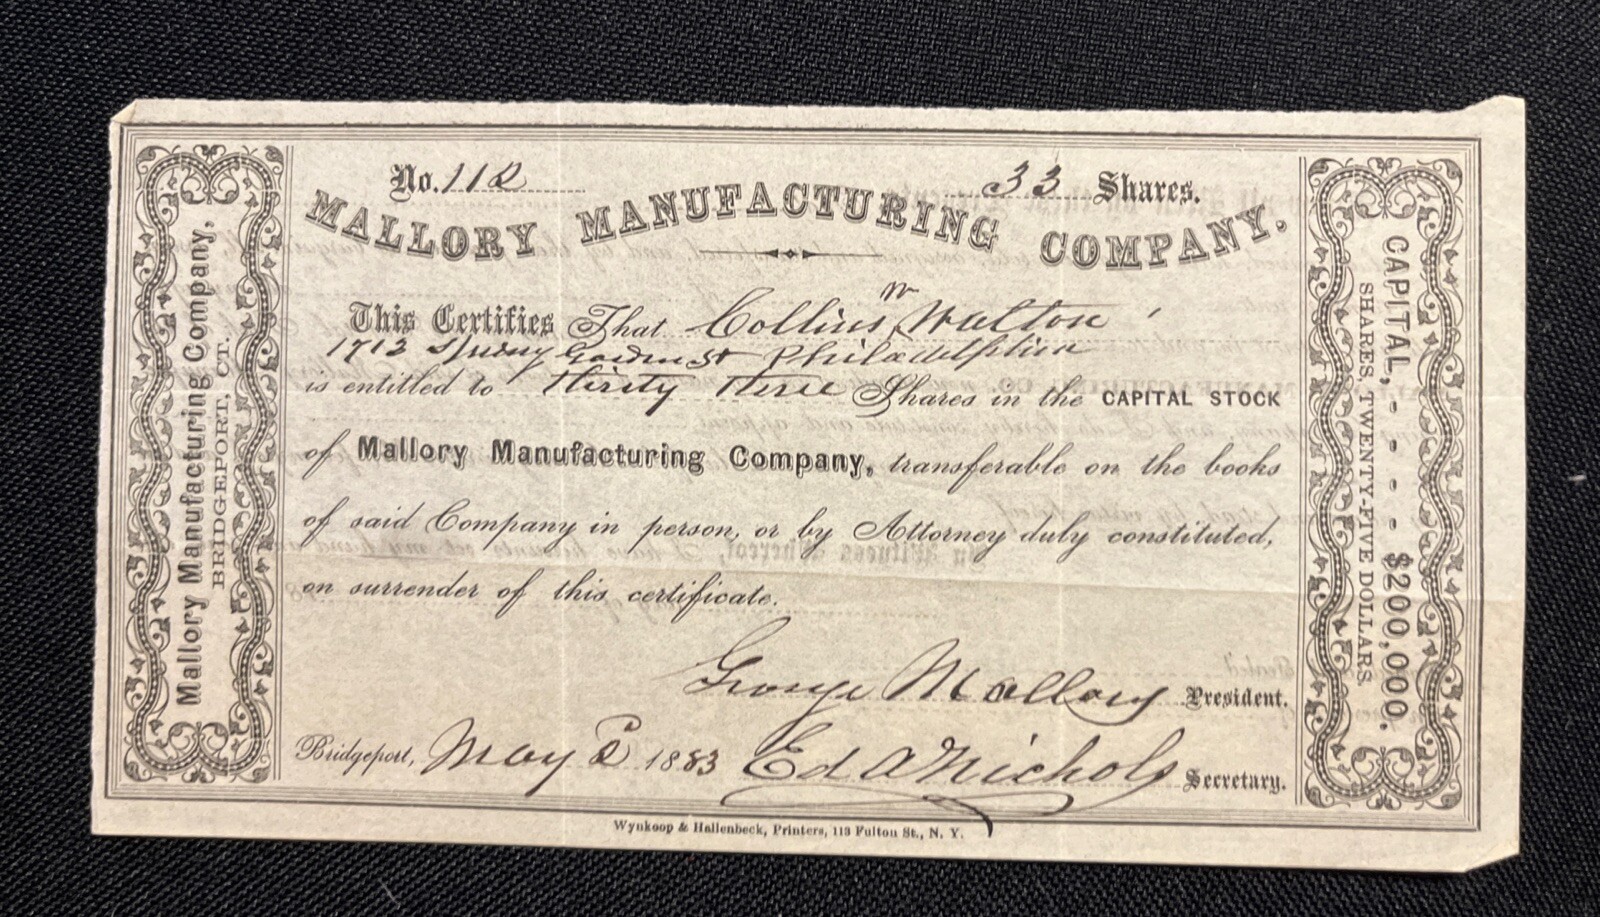 No. 112 33 Shares.
MALLORY MANUFACTURING COMPANY.
This Certifies That Collins Wm Walton
1713 Spring Garden St Philadelphia
is entitled to Thirty Three Shares in the CAPITAL STOCK
of Mallory Manufacturing Company, transferable on the books
of said Company in person, or by Attorney duly constituted,
on surrender of this certificate.
George Mallory President.
Bridgeport, May 2 1883 Ed A Nichols Secretary.
Wynkoop & Hallenbeck, Printers, 113 Fulton St., N. Y.
Mallory Manufacturing Company,
BRIDGEPORT, CT.
CAPITAL, - - - - - $200,000.
SHARES, TWENTY-FIVE DOLLARS.